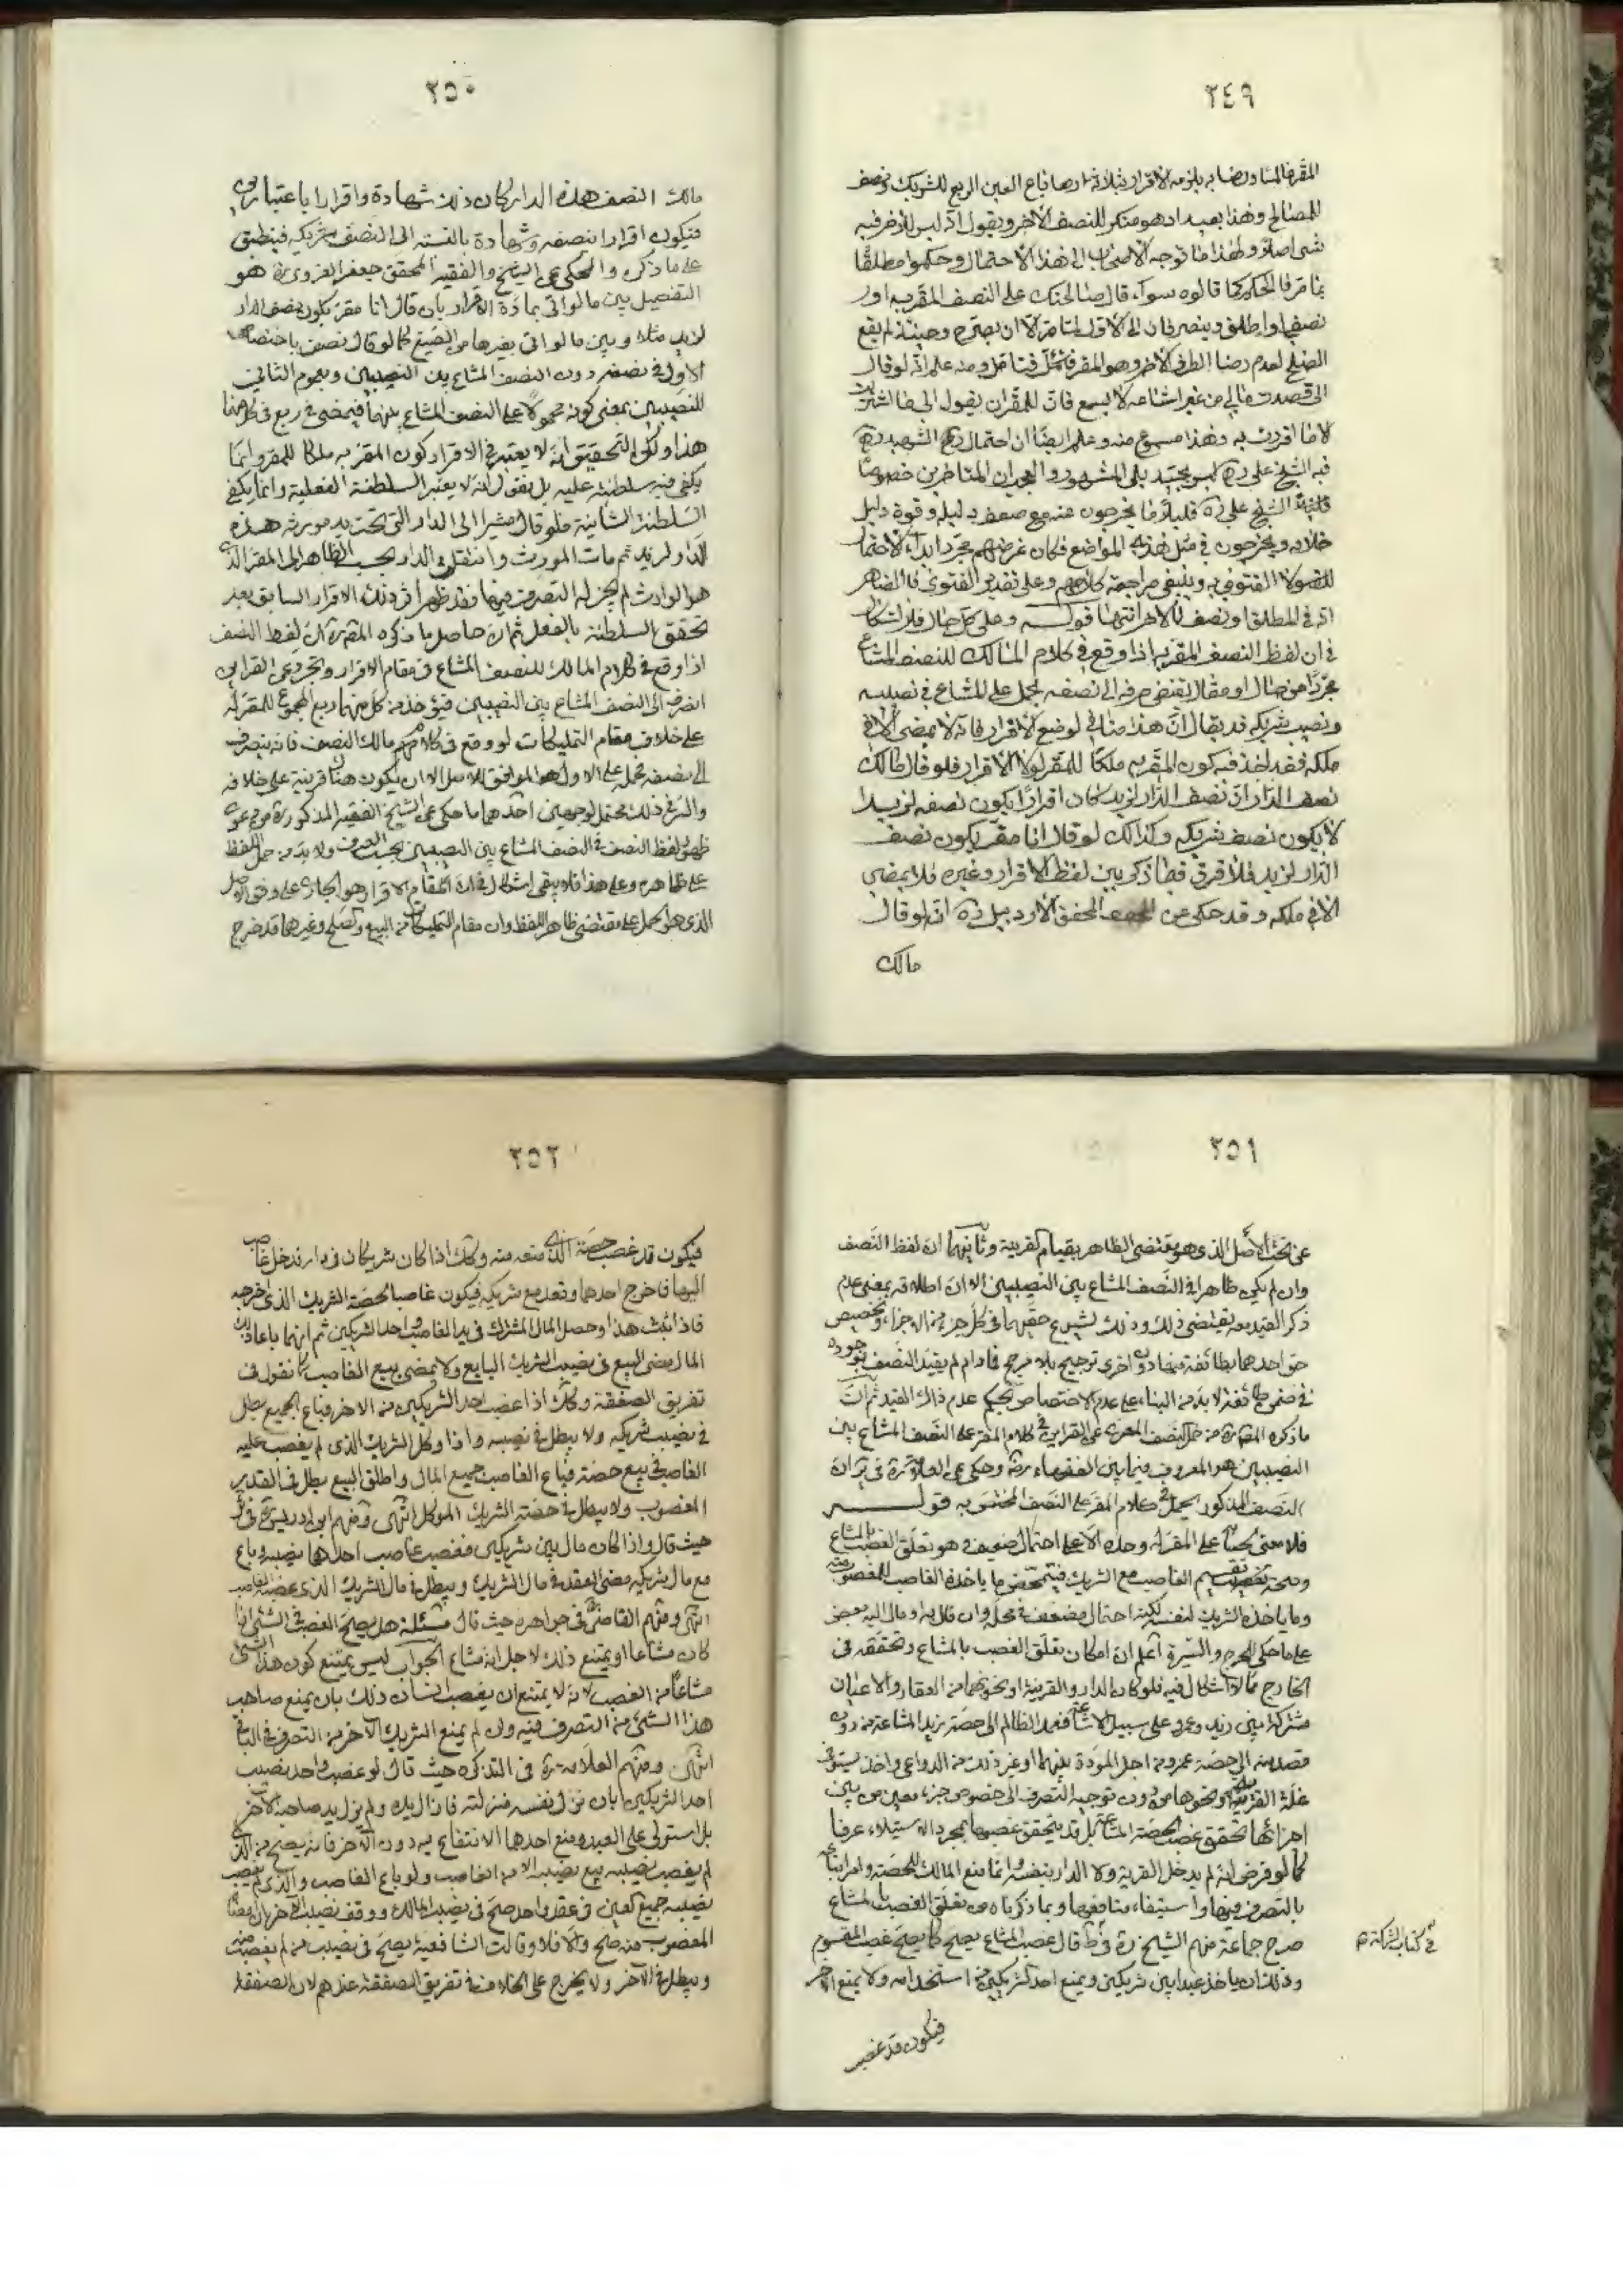 ٢٤٩
المقر فالمشاع
للمصالح وهذا بعيد اذ هو منكر للنصف الاخر ويقول انه ليس للاخر فيه
شئ اصلا ولهذا ما توجه الاصحاب الى هذا الاحتمال وحكموا مطلقا
قالوه سواء قال صالحتك على النصف المقر به او
نصفها او اطلق وينصرفان الى الاول لما مر الا ان يصرح وحينئذ لم يقع
الصلح لعدم رضا الطرف الاخر وهو المقر فتأمل ومنه علم انه لو قال
الى قصدت مالي من غير اشاعة لا يسمع فان للمقر ان يقول الى ما اشتريت
لا ما اقررت به وهذا مسموع منه وعلم ايضا ان احتمال الشهيد ره
فيه الشيخ علي ره ليس بجيد بل المشهور والعجب ان المتاخرين خصوصا
الشيخ علي ره قليلا ما يخرجون عنه مع ضعف دليله وقوة دليل
خلافه ويخرجون في مثل هذه المواضع فكان غرضهم مجرد ابداء الاحتمال
للقول لا الفتوى به وينبغي مراجعة كلامهم وعلى تقدير الفتوى فالظاهر
انه في المطلق او نصف الاخر انتهى قوله وعلى كل حال فلا اشكال
في ان لفظ النصف المقر به اذا وقع في كلام المالك للنصف المشاع
مجردا من حال او مقال يقتضي صرفه الى نصفه يحمل على المشاع في نصيبه
ونصيب شريكه قد يقال ان هذا مناف لوضع الاقرار فانه لا يمضى الا في
ملكه فقد اخذ فيه كون المقر به ملكا للمقر لولا الاقرار فلو قال مالك
نصف الدار ان نصف الدار لزيد كان اقرارا بكون نصفه لزيد
لا بكون نصف شريكه وكذلك لو قال انا مقر بكون نصف
الدار لزيد فلا فرق فيما ذكر بين لفظ الاقرار وغيره فلا يمضى
الا في ملكه وقد حكى عن المحقق الاردبيلي ره انه لو قال
مالك
٢٥٠
مالك النصف هذه الدار لكان ذلك شهادة واقرارا باعتبارين
فيكون اقرارا بنصفه وشهادة بالنسبة الى النصف شريكه فينطبق
على ما ذكره والمحكى عن الشيخ والفقيه المحقق جعفر الغروي ره هو
التفصيل بين ما لو اتى بمادة الاقرار بان قال انا مقر بكون نصف الدار
لزيد مثلا وبين ما لو اتى بغيرها من الصيغ كما لو قال نصف باختصاص
الاول في نصفه دون النصف المشاع بين النصيبين وبعموم الثاني
للنصيبين بمعنى كونه محمولا على النصف المشاع بينهما فيمضى في ربع في كل منهما
هذا ولكن التحقيق انه لا يعتبر في الاقرار كون المقر به ملكا للمقر وانما
يكفي فيه سلطنته عليه بل نقول انه لا يعتبر السلطنة الفعلية وانما يكفي
السلطنة الشأنية فلو قال مشيرا الى الدار التي تحت يد مورثه هذه
الدار لزيد ثم مات المورث وانتقل الدار بحسب الظاهر الى المقر الذي
هو الوارث لم يجز له التصرف فيها فقد ظهر اثر ذلك الاقرار السابق بعد
تحقق السلطنة بالفعل ثم ان حاصل ما ذكره المص ره ان لفظ النصف
اذا وقع في كلام المالك للنصف المشاع في مقام الاقرار وتجرد عن القراين
انصرف الى النصف المشاع بين النصيبين فيؤخذ من كل منهما ربع المجموع للمقر له
على خلاف مقام التمليكات لو وقع في كلامهم مالك النصف فانه ينصرف
الى نصفه فحمله على الاول هو الموافق للاصل الا ان يكون هناك قرينة على خلافه
والسر في ذلك يحتمل لوجهين احدهما ما حكى عن الشيخ الفقيه المذكور ره من دعوى
ظهور لفظ النصف في النصف المشاع بين النصيبين بحسب العرف ولا بد من حمل اللفظ
على ظاهره وعلى هذا فلا يبقى اشكال في ان المقام الاقرار هو الجاري على وفق الاصل
الذي هو الحمل على مقتضى ظاهر اللفظ وان مقام التمليكات من البيع والصلح وغيرهما قد خرج
٢٥١
عن تحت الاصل الذي هو مقتضى الظاهر بقيام القرينة وثانيهما ان لفظ النصف
وان لم يكن ظاهرا في النصف المشاع بين النصيبين الا ان اطلاقه بمعنى عدم
ذكر القيد معه يقتضي ذلك وذلك لشيوع حقهما في كل جزء من الاجزاء وتخصيص
حق احدهما بطائفة منها دون اخرى ترجيح بلا مرجح فما دام لم يقيد النصف بوجوده
في ضمن طائفة لا بد من البناء على عدم الاختصاص بحكم عدم ذلك القيد ثم ان
ما ذكره المص ره من حمل النصف المعرى عن القراين في كلام المقر على النصف المشاع بين
النصيبين هو المعروف فيما بين الفقهاء رض وحكى عن العلامة ره في
النصف المذكور يحمل في كلام المقر على النصف المختص به قوله
فلا معنى لحسابه على المقر له وحده الا على احتمال ضعيف هو تعلق الغصب بالمشاع
وصحة تقسيم الغاصب مع الشريك فيتمحض ما ياخذه الغاصب للمغصوب منه
وما ياخذه الشريك لنفسه لكنه احتمال مضعف في محله وان قال به او مال اليه بعض
على ما حكى للحرج والسيرة اعلم ان امكان تعلق الغصب بالمشاع وتحققه في
الخارج مما لا اشكال فيه فلو كان الدار والقرية او نحوهما من العقار والاعيان
مشتركا بين زيد وعمرو على سبيل الاشاعة فعمد الظالم الى حصة زيد المشاعة من دون
قصد منه الى حصة عمرو من اجل المودة بينهما او غير ذلك من الدواعي واخذ يستوفى
غلة القرية ونحوها من دون توجيه التصرف الى خصوص جزء معين من بين
اجزائها تحقق غصب الحصة المشاعة بل قد يتحقق غصبها بمجرد الاستيلاء عرفا
كما لو فرض انه لم يدخل القرية ولا الدار بنفسه وانما منع المالك للحصة
بالتصرف فيها واستيفاء منافعها وبما ذكرناه من تعلق الغصب بالمشاع
صرح جماعة منهم الشيخ ره في ط قال غصب المشاع يصح كما يصح غصب المقسوم
وذلك ان ياخذ عبدا بين شريكين ويمنع احد الشريكين من استخدامه ولا يمنع الاخر
في كتاب الشركة م
فيكون قد غصب
٢٥٢
فيكون قد غصب حصة الذي منعه منه وكك اذا كان شريكان في دار فدخل غاصب
اليها فاخرج احدهما وقعد مع شريكه فيكون غاصبا لحصة الشريك الذي اخرجه
فاذا ثبت هذا وحصل المال المشترك في يد الغاصب واحد الشريكين ثم انهما باعا ذلك
المال مضى البيع في نصيب الشريك البايع ولا يمضى بيع الغاصب كما نقول في
تفريق الصفقة وكك اذا غصب احد الشريكين من الاخر فباع الجميع بطل
في نصيب شريكه ولا يبطل في نصيبه واذا وكل الشريك الذي لم يغصب عليه
الغاصب في بيع حصته فباع الغاصب جميع المال واطلق البيع بطل في القدر
المغصوب ولا يبطل في حصته الشريك الموكل انتهى ومنهم ابن ادريس ره في ئر
حيث قال واذا كان مال بين شريكين فغصب غاصب احدهما نصيبه وباع
مع مال شريكه مضى العقد في مال الشريك ويبطل في مال الشريك الذي غصبه الغاصب
انتهى ومنهم القاضي في جواهره حيث قال مسئلة هل يصح الغصب في الشئ اذا
كان مشاعا او يمتنع ذلك لاجل انه مشاع الجواب ليس يمتنع كون هذا الشئ
مشاعا من الغصب لانه لا يمتنع ان يغصب انسان ذلك بان يمنع صاحب
هذا الشئ من التصرف فيه وان لم يمنع الشريك الاخر من التصرف في الباقي
انتهى ومنهم العلامة ره في التذكرة حيث قال لو غصب واحد نصيب
احد الشريكين بان نزل نفسه منزلته فازال يده ولم يزل يد صاحبه الاخر
بل استولى على العبد ومنع احدهما الانتفاع به دون الاخر فانه يصح من الذي
لم يغصب نصيبه بيع نصيبه الا من الغاصب ولو باع الغاصب والذي لم يغصب
نصيبه جميع العين في عقد واحد صح في نصيب المالك ووقف نصيب الاخر
المغصوب منه صح والا فلا وقالت الشافعية يصح في نصيب من لم يغصب منه
ويبطل في الاخر ولا يخرج على الخلاف في تفريق الصفقة عندهم لان الصفقة